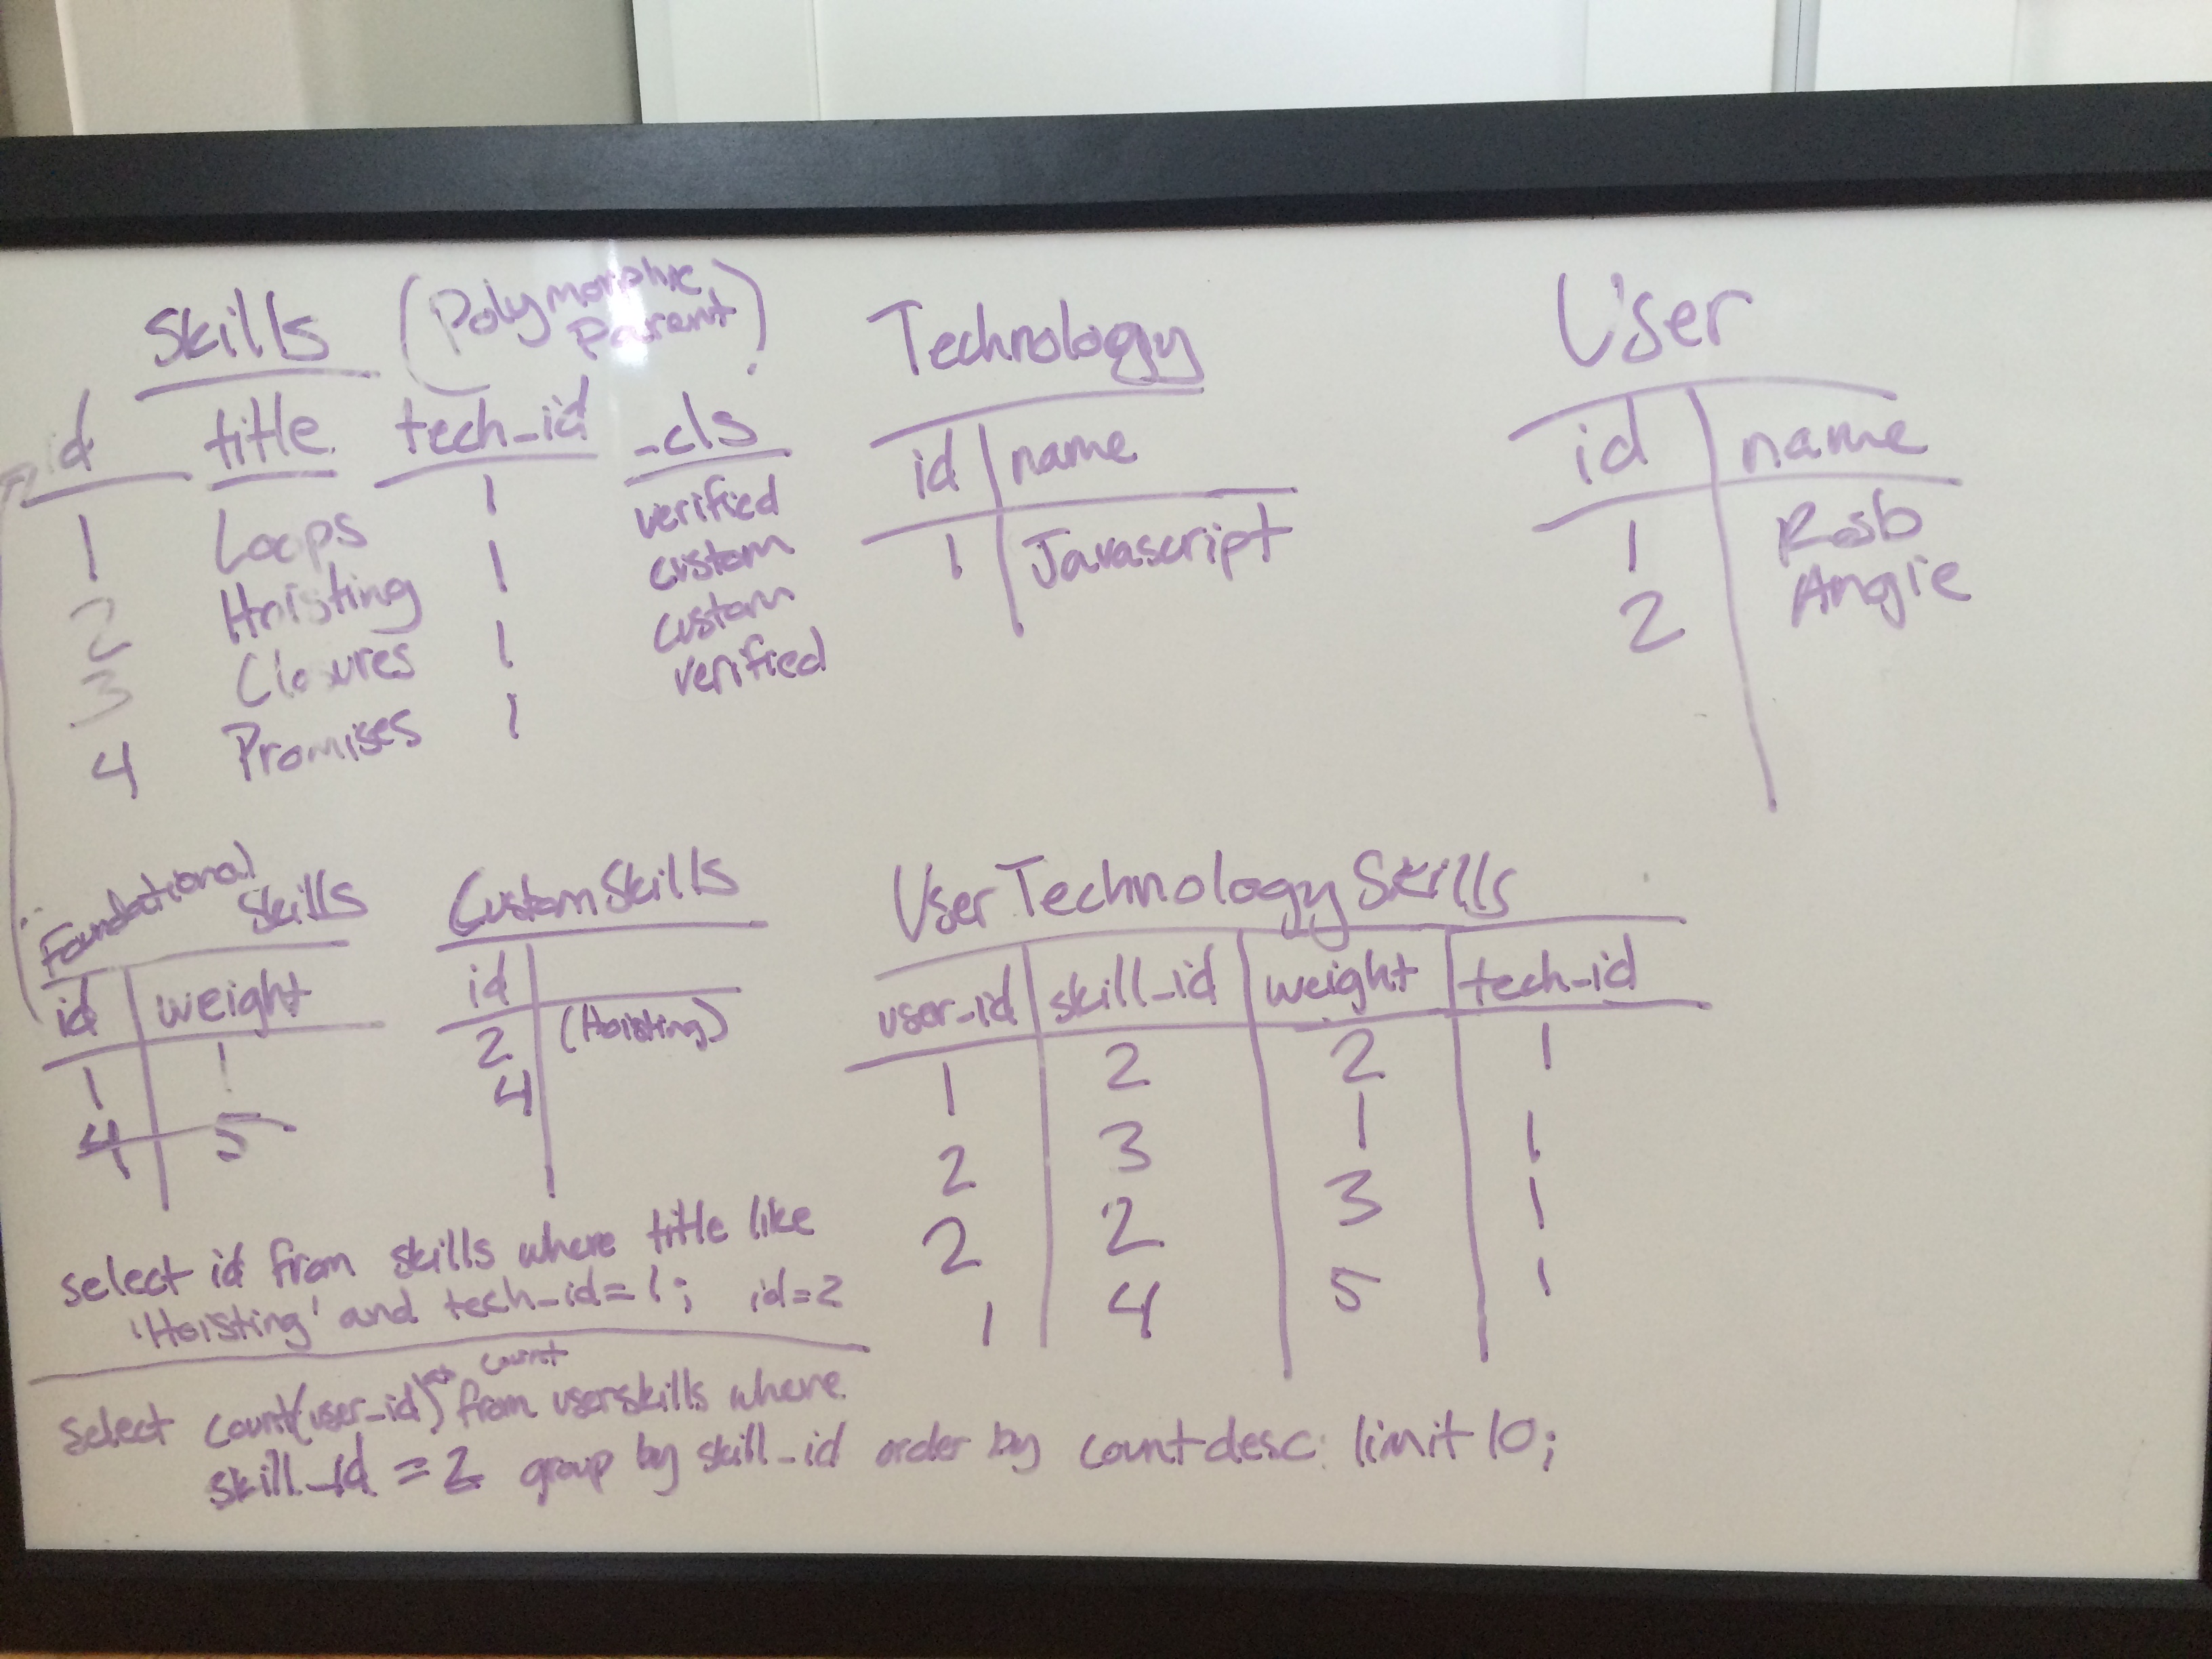 Skills (Polymorphic Parent)
id title tech_id _cls
1 Loops 1 verified
2 Hoisting 1 custom
3 Closures 1 custom
4 Promises 1 verified
Technology
id name
1 Javascript
User
id name
1 Rob
2 Angie
Foundational Skills
id weight
1 1
4 5
CustomSkills
id
2 (Hoisting)
4
UserTechnologySkills
user_id skill_id weight tech_id
1 2 2 1
2 3 1 1
2 2 3 1
1 4 5 1
select id from skills where title like
'Hoisting' and tech_id=1; id=2
Select count(user_id) as count from userskills where
skill_id = 2 group by skill_id order by count desc limit 10;